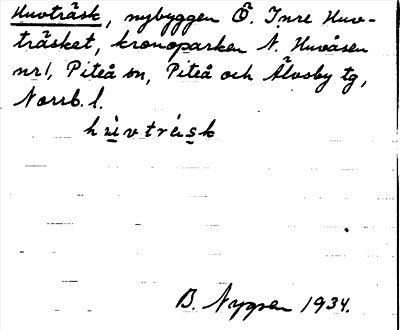 Huvträsk, nybyggen Ö. Inre Huv-
träsket, kronoparken N. Huvåsen
nr 1, Piteå sn, Piteå och Älvsby tg,
Norrb. l.
hu̲vträs̲k
B. Nygren 1934.